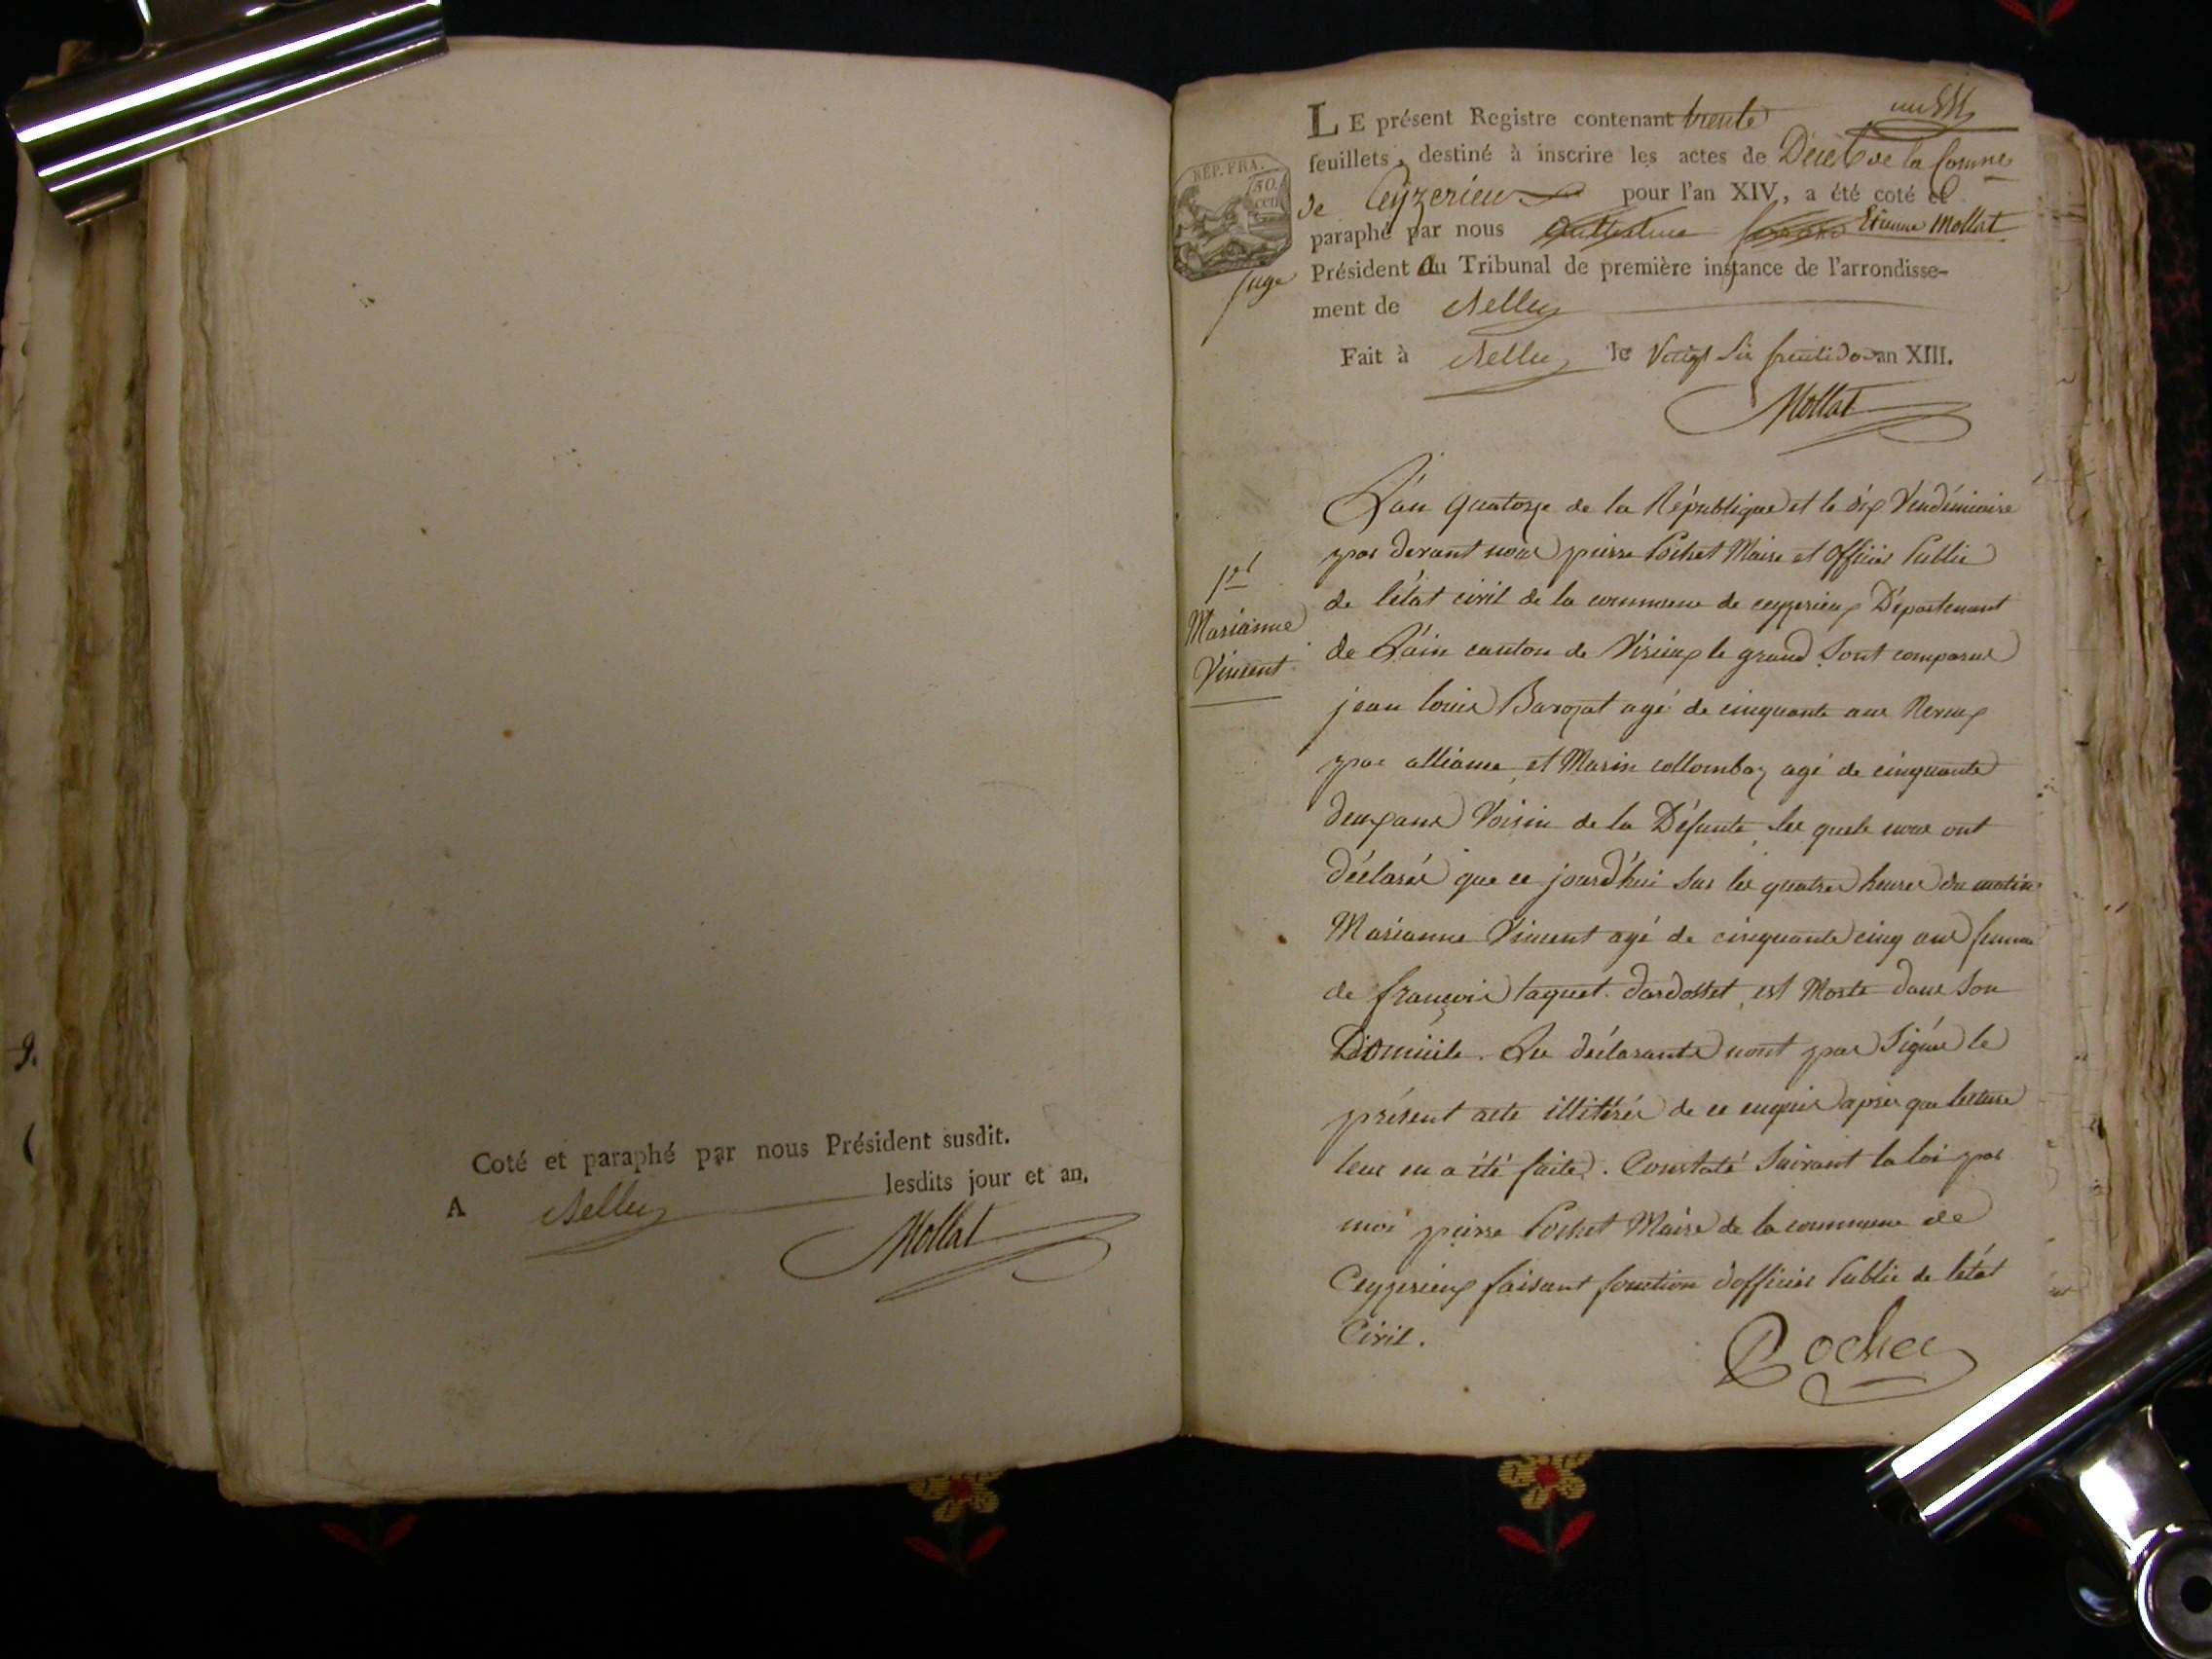 Coté et paraphé par nous Président susdit.
A Belley lesdits jour et an.
Mollat
LE présent Registre contenant trente
feuillets, destiné à inscrire les actes de Décès de la Comune
de Ceyzerieu pour l'an XIV, a été coté et
paraphé par nous Etienne Mollat
juge Président au Tribunal de première instance de l'arrondisse-
ment de Belley
Fait à Belley le Vingt Six fructidor an XIII.
Mollat
REP. FRA.
50
cen
1er
Marianne
Vincent
L'an quatorze de la République et le dix Vendémiaire
par devant nous pierre Pochet Maire et Officier Public
de l'état civil de la commune de ceyzerieux Département
de L'ain canton de Virieux le grand Sont comparus
jean louis Barozat agé de cinquante ans Neveux
par alliance, et Marin collomboz agé de cinquante
deux ans Voisin de la Défunte, les quels nous ont
déclarés que ce jourd'hui sur les quatres heures du matin
Marianne Vincent agé de cinquante cinq ans femme
de françois taquet dardosset, est Morte dans Son
Domicile. Les déclarants nont pas Signés le
présent acte illitérés de ce enquis après que lecture
leur en a été faite. Constaté Suivant la loi par
moi pierre Pochet Maire de la commune de
Ceyzerieux faisant fonction dofficier Public de l'état
Civil.
Pochet
9.